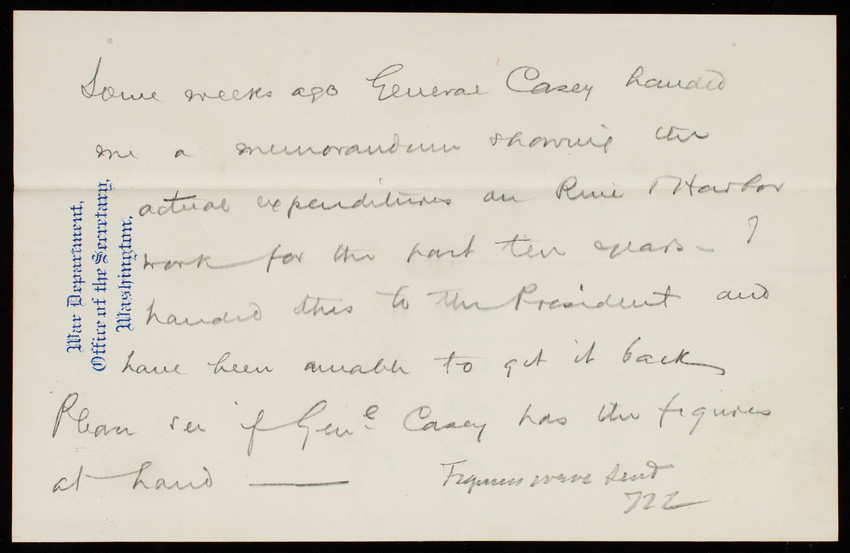 War Department,
Office of the Secretary,
Washington,
Some weeks ago General Casey handed
me a memorandum showing the
actual expenditures on River & Harbor
work for the past ten years – I
handed this to the President and
have been unable to get it back
Please see if Gen<sup>l</sup> Casey has the figures
at hand ——
Figures were sent